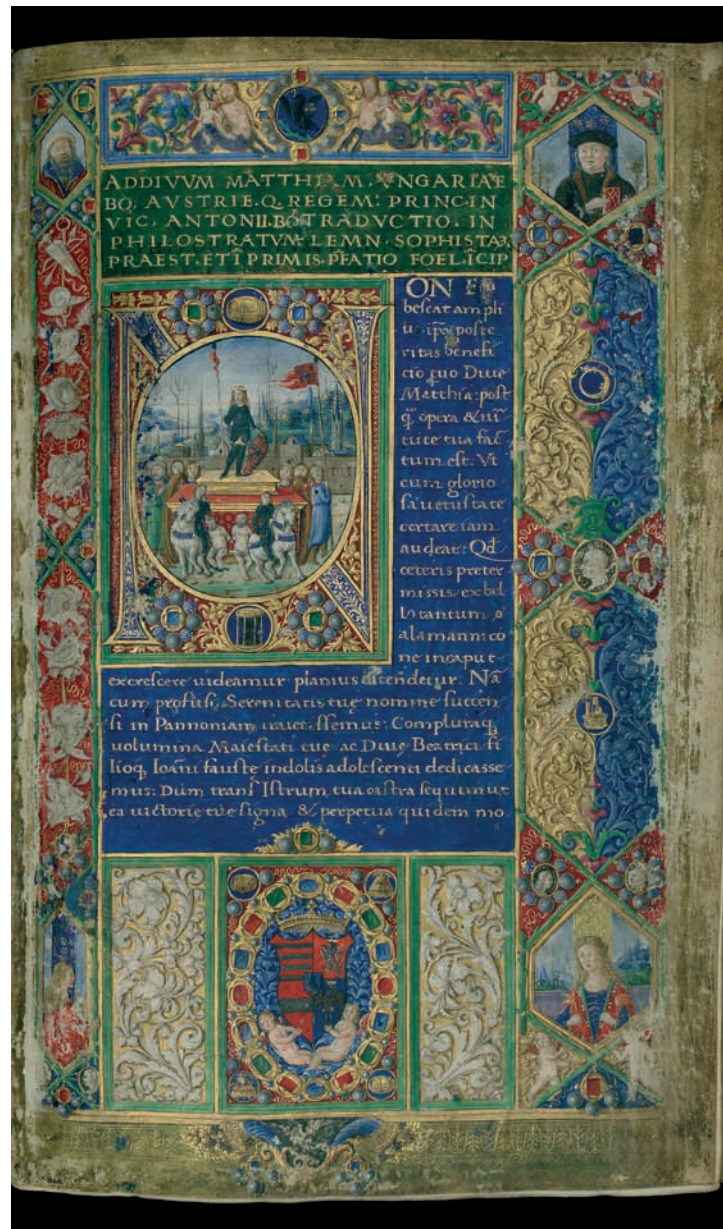 ADDIVVM MATTHIAM. VNGARIAE
BO. AVSTRIE. Q. REGEM: PRINC. IN
VIC. ANTONII. BO TRADVCTIO. IN
PHILOSTRATVM LEMN. SOPHISTAȝ
PRAEST. ET Ī PRIMIS. PFATIO FOEL. ĪCIP
ON
bescat ampli
posте
ritas benefi
cio tuo Diue
Matthia: post
q̄ opera & uir
tute tua fac
tum est. Vt
cum glorio
sa uetustate
certare iam
audeat: Qd
ceteris preter
missis, ex bel
lo tantum
alamannico
ne in caput
excrescere uideamur planius ostendetur. Nā
cum profusi, Serenitatis tuę nomine succen
si in Pannoniam Compluraq.
uolumina Maiestati tuę ac Diuę Beatrici fi
lioq. Ioāni faustę indolis adolescenti dedicasse
mus: Dum trans Istrum tua castra sequimur
ea uictorie tuę signa & perpetua quidem mo